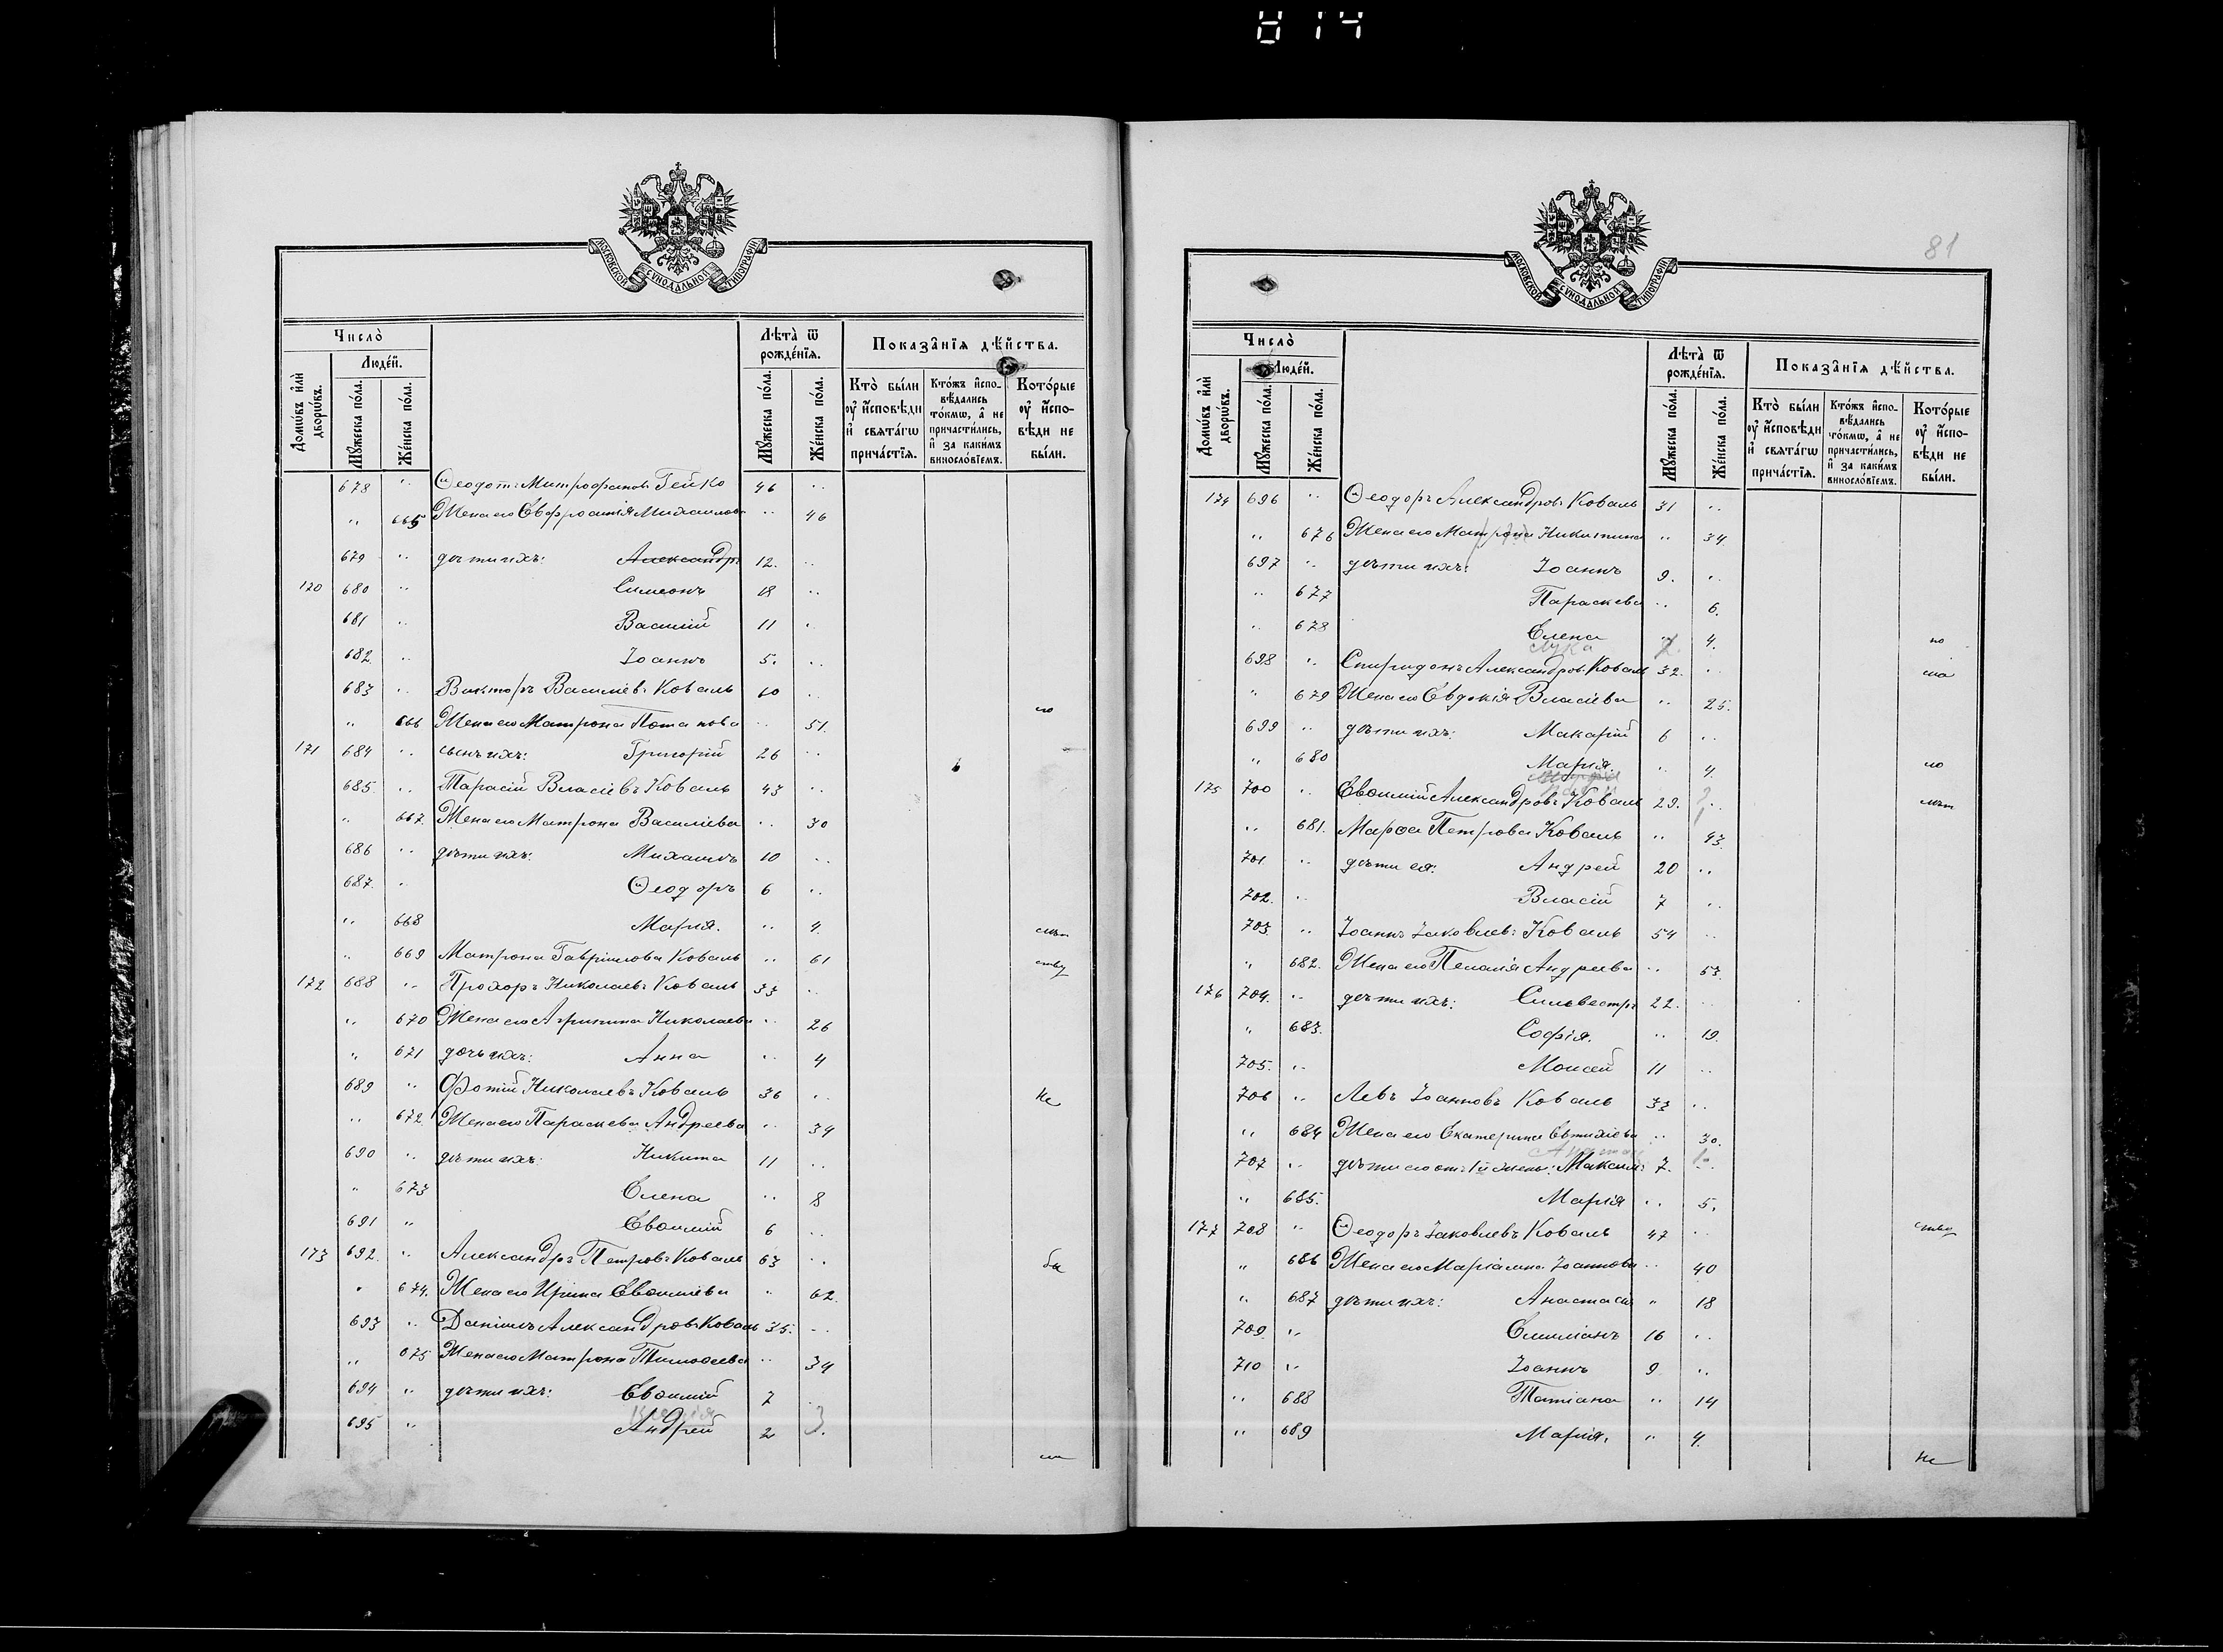 814
МОСКОВСКОЙ СУНОДАЛЬНОЙ ТИПОГРАФІИ
Число̀
Людéй.
Домѡ́въ и҆лѝ дворѡ́въ.
Мꙋ́жеска по́ла.
Же́нска по́ла.
Лѣ́та ѿ рожде́нїѧ.
Мꙋ́жеска по́ла.
Же́нска по́ла.
Показа̂нїѧ дѣ́йства.
Кто̀ бы́ли ᲂу҆ и҆сповѣ́ди и҆ свѧта́гѡ прича́стїѧ.
Кто́жъ и҆спо-вѣ́дались то́кмѡ, а҆ не причасти́лись, и҆ за каки́мъ винословїемъ.
Кото́рые ᲂу҆ и҆спо-вѣ́ди не бы́ли.
678 " Ѳеодотъ Митрофановъ Гейко 46 "
" 665 Жена его Евфросинія Михаилова " 46
679 " дѣти ихъ: Александръ 12. "
170 680 " Симеонъ 18 "
681 " Василій 11 "
682. " Іоаннъ 5. "
683 " Викторъ Василіевъ Коваль 60 "
" 666 Жена его Матрона Потапова " 51.
171 684 " сынъ ихъ: Григорій 26 "
685. " Тарасій Власіевъ Коваль 43 "
" 667. Жена его Матрона Василіева " 30
686 " дѣти ихъ: Михаилъ 10 "
687. " Ѳеодоръ 6 "
" 668 Марія. " 4.
" 669 Матрона Гавріилова Коваль " 61
172 688 " Прохоръ Николаевъ Коваль 33 "
" 670 Жена его Агрипина Николаева " 26
" 671 дочь ихъ: Анна " 4
689 " Фотій Николаевъ Коваль 36 " Не
" 672. Жена его Параскева Андреева " 34
690 " дѣти ихъ: Никита 11 "
" 673 Елена " 8
691 " Евѳимій 6 "
173 692. " Александръ Петровъ Коваль 63 " бы
" 674. Жена его Ирина Евѳиміева " 62.
693 " Даніилъ Александровъ Коваль 35. "
" 675 Жена его Матрона Тимоѳеева " 34
694 " дѣти ихъ: Евѳимій 7 "
695 " Андрей 2 3.
81
МОСКОВСКОЙ СУНОДАЛЬНОЙ ТИПОГРАФІИ
Число̀
Людéй.
Домѡ́въ и҆лѝ дворѡ́въ.
Мꙋ́жеска по́ла.
Же́нска по́ла.
Лѣ́та ѿ рожде́нїѧ.
Мꙋ́жеска по́ла.
Же́нска по́ла.
Показа̂нїѧ дѣ́йства.
Кто̀ бы́ли ᲂу҆ и҆сповѣ́ди и҆ свѧта́гѡ прича́стїѧ.
Кто́жъ и҆спо-вѣ́дались то́кмѡ, а҆ не причасти́лись, и҆ за каки́мъ винословїемъ.
Кото́рые ᲂу҆ и҆спо-вѣ́ди не бы́ли.
174 696 " Ѳеодоръ Александровъ Коваль 31 "
" 676 Жена его Матрона Никитина " 34.
697 " дѣти ихъ: Іоаннъ 9. "
" 677 Параскева " 6.
" 678 Елена " 4. по
Лука 2.
698 " Спиридонъ Александровъ Коваль 32. "
" 679 Жена его Евдокія Власіева " 25.
699 " дѣти ихъ: Макарій 6 "
" 680 Марія. " 4.
175 700 " Евѳимій Александровъ Коваль 29. "
" 681. Марѳа Петрова Коваль " 43.
701. " дѣти ея: Андрей 20 "
702. " Власій 7 "
703. " Іоаннъ Іаковлевъ Коваль 54 "
" 682. Жена его Пелагія Андреева " 53.
176 704. " дѣти ихъ: Сильвестръ 22. "
" 683. Софія. " 19.
705. " Моисей 11 "
706 " Левъ Іоанновъ Коваль 33 "
" 684 Жена его Екатерина Евтихіева " 30.
707 " дѣти его отъ 1й жены: Максимъ 7. "
" 685. Марія " 5.
177 708 " Ѳеодоръ Іаковлевъ Коваль 47 " ству
" 686 Жена его Маріамна Іоаннова " 40
" 687 дѣти ихъ: Анастасія " 18
709. " Емиліанъ 16 "
710 " Іоаннъ 9 "
" 688 Татіана " 14
" 689 Марія. " 4.
Не